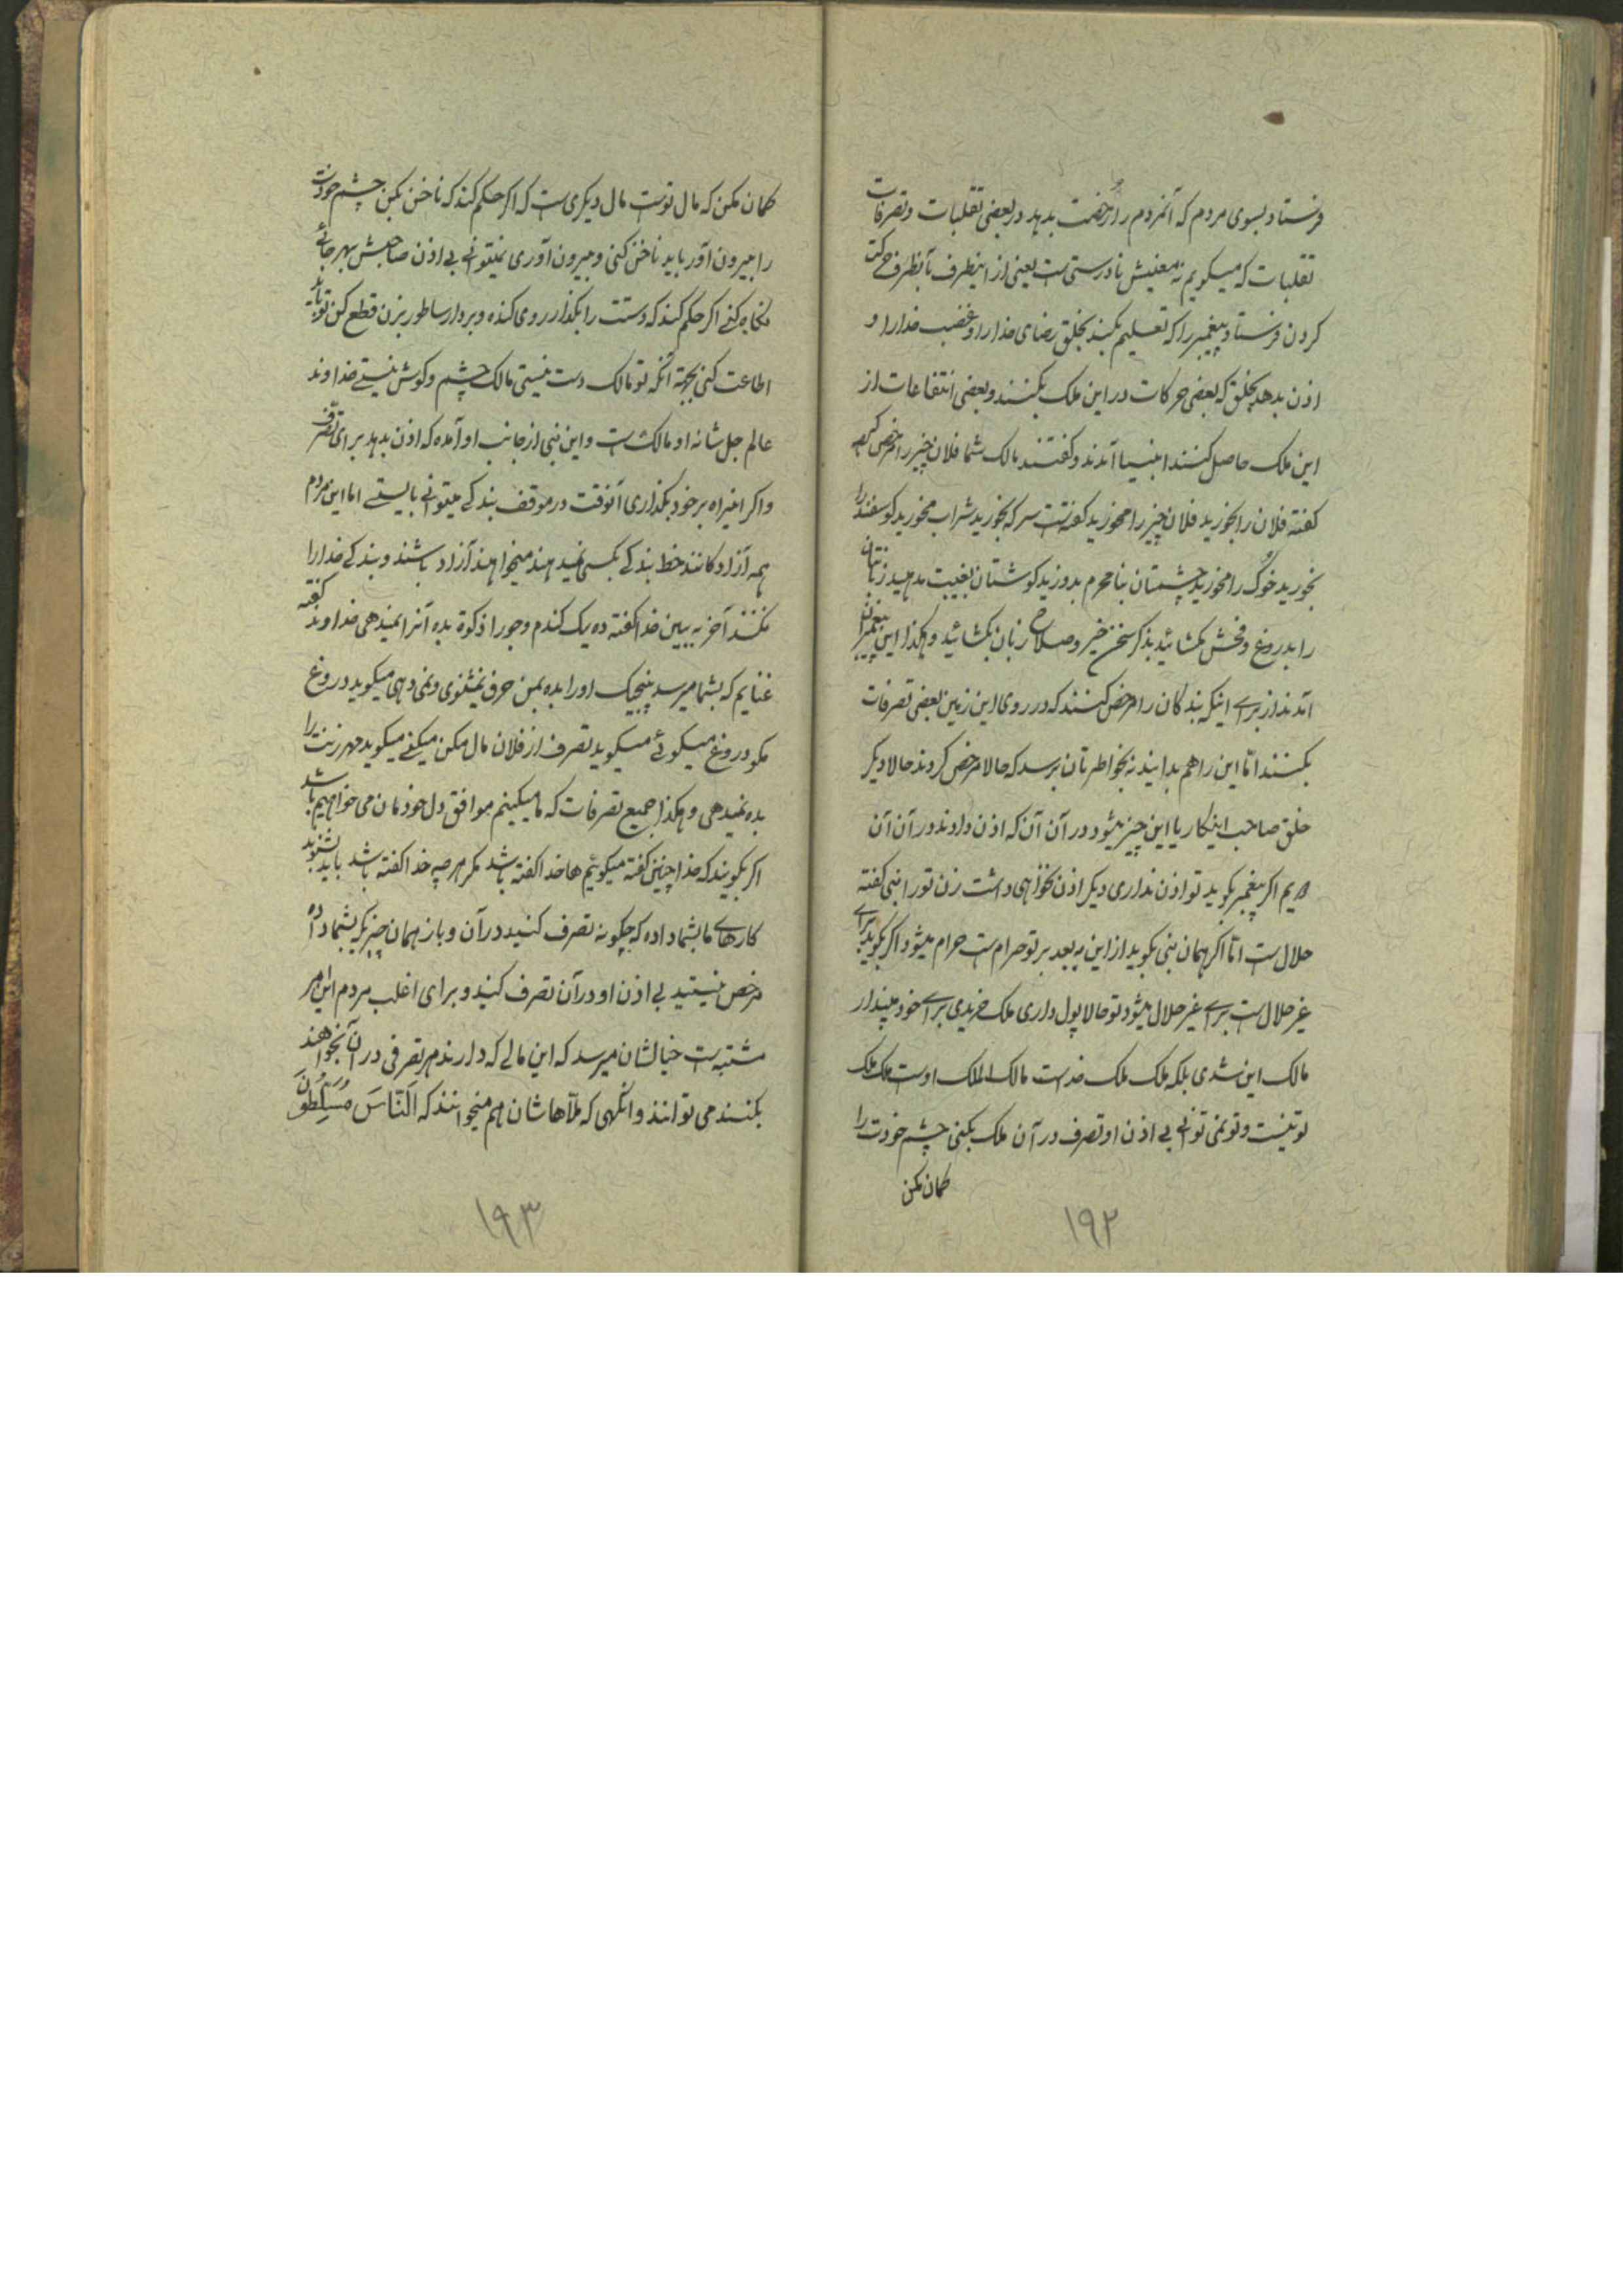 فرستاد بسوی مردم که آنمردم را رخصت بدهد در بعضی تقلبات و تصرفات
تقلبات که میگویم نه معنیش نادرستی است یعنی از اینطرف بآنطرف حرکت
کردن فرستاد پیغمبر را که تعلیم بکند بخلق رضای خدا را و غضب خدا را و
اذن بدهد بخلق که بعضی حرکات در این ملک بکنند و بعضی انتفاعات از
این ملک حاصل کنند انبیا آمدند و گفتند مالک شما فلان چیز را مرخص کرده
گفته فلان را بخورید فلان چیز را مخورید گفته است سرکه بخورید شراب مخورید گوسفند را
بخورید خوک را مخورید چشمتان بنا محرم بدوزید گوشتان بغیبت مدهید زبانتان
را بدروغ و فحش مگشائید بذکر سخن خیر و صلاح زبان بگشائید و هکذا این پیغمبران
آمدند از برای اینکه بندگان را مرخص کنند که در روی این زمین بعضی تصرفات
بکنند امّا این را هم بدانید نه بخواطرتان برسد که حالا مرخص کردند حالا دیگر
خلق صاحب اینکار یا این چیز میشود در آن آن که اذن دادند در آن آن
داریم اگر پیغمبر بگوید تو اذن نداری دیگر اذن نخواهی داشت زن تو را نبی گفته
حلال است امّا اگر همان نبی بگوید از این به بعد بر تو حرام است حرام میشود اگر بگوید برای
غیر حلال است برای غیر حلال میشود تو حالا پول داری ملک خریدی برای خود مپندار
مالک این شدی بلکه ملک ملک خداست مالک الملک اوست ملک ملک
تو نیست و تو نمی توانی بی اذن او تصرف در آن ملک بکنی چشم خودت را
گمان مکن
۱۹۲
گمان مکن که مال توست مال دیگری است که اگر حکم کند که ناخن بکن چشم خودت
را بیرون آور باید ناخن کنی و بیرون آوری نمیتوانی بی اذن صاحبش بهر جائی
نگاه کنی اگر حکم کند که دستت را بگذار روی کنده و بردار ساطور بزن قطع کن تو باید
اطاعت کنی بجهة آنکه تو مالک دست نیستی مالک چشم و گوش نیستی خداوند
عالم جل شانه او مالک است و این نبی از جانب او آمده که اذن بدهد برای تصرف
و اگر اینراه بر خود بگذاری آنوقت در موقف بندگی میتوانی بایستی اما این مردم
همه آزادگانند خط بندگی بکسی نمیدهند میخواهند آزاد باشند و بندگی خدا را
نکنند آخر به ببین خدا گفته ده یک گندم و جو را زکوة بده آنرا نمیدهی خداوند گفته
غنایم که بشما میرسد پنجیک او را بده بمن حرف نمیشنوی و نمی دهی میگوید دروغ
مگو دروغ میگوئی میگوید تصرف از فلان مال مکن میکنی میگوید مهر زنت را
بده نمیدهی و هکذا جمیع تصرفات که ما میکنیم موافق دل خودمان می خواهیم باشد
اگر بگویند که خدا چنین گفته میگوئیم ها خدا گفته باشد مگر هر چه خدا گفته باشد باید بشنوید
کارهای ما بشما داده که چگونه تصرف کنید در آن و باز همان چیزیکه بشما داده
مرخص نیستید بی اذن او در آن تصرف کنید و برای اغلب مردم این امر
مشتبه است خیالشان میرسد که این مالی که دارند هر تصرفی در آن بخواهند
بکنند می توانند وانگهی که ملّاهاشان هم میخوانند که اَلنّاسَ مُسَلَّطُونَ
۱۹۳